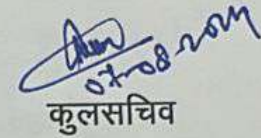 07-08-2024
कुलसचिव